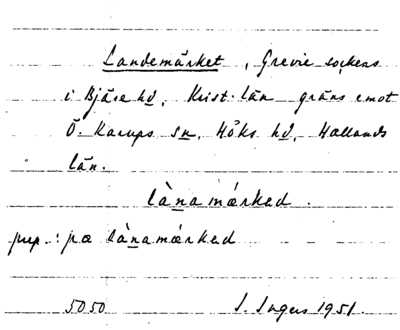 Landemärket, Grevie sockens
i Bjäre hd, Krist. län gräns emot
Ö. Karups sn, Höks hd, Hallands
län.
lànamærked.
prep.: pæ lànamærked
5050 I. Ingers 1951.